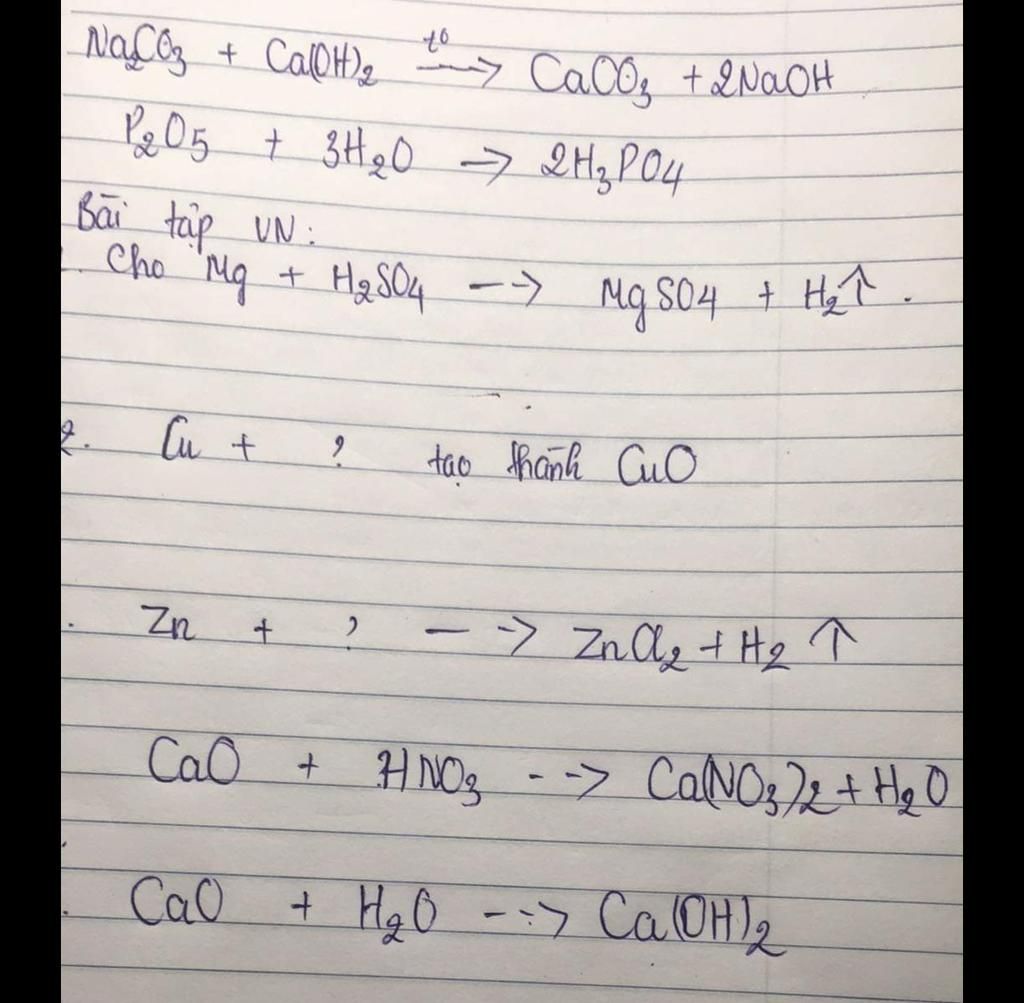 Na2CO3 + Ca(OH)2 t⁰→ CaCO3 + 2NaOH
P2O5 + 3H2O → 2H3PO4
Bài tập VN:
Cho Mg + H2SO4 --> MgSO4 + H2↑.
2. Cu + ? tạo thành CuO
Zn + ? --> ZnCl2 + H2 ↑
CaO + HNO3 --> Ca(NO3)2 + H2O
CaO + H2O --> Ca(OH)2